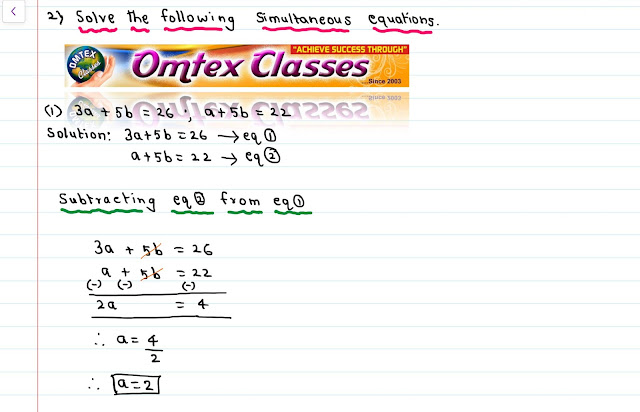 2) Solve the following Simultaneous equations.
"ACHIEVE SUCCESS THROUGH"
OMTEX Classes
Omtex Classes
Since 2003
(i) 3a + 5b = 26 ; a + 5b = 22
Solution: 3a + 5b = 26 → eq ①
a + 5b = 22 → eq ②
Subtracting eq ② from eq ①
3a + 5b = 26
a + 5b = 22
(-) (-) (-)
2a = 4
∴ a = 4
2
∴ a = 2